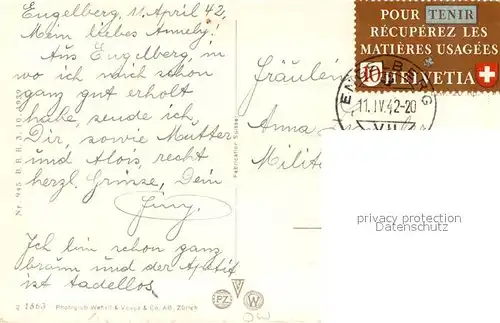 Engelberg, 11. April 42.
Mein liebes Annely!
Aus Engelberg, in
wo ich mich schon
ganz gut erholt
habe, sende ich
Dir, sowie Mutter
und Alois, recht
herzl. Grüsse, Dein
Jimy.
Ich bin schon ganz
braun und der Apetit
ist tadellos
2 1663 Photoglob-Wehrli & Vouga & Co. AG. Zürich
Nr. 945 B.R.B. 3. 10.
Fabrication Suisse
PZ W
Fräulein
Anna
Milit
POUR TENIR
RÉCUPÉREZ LES
MATIÈRES USAGÉES
10 HELVETIA
ENGELBERG
11.IV.42-20
VII
privacy protection
Datenschutz